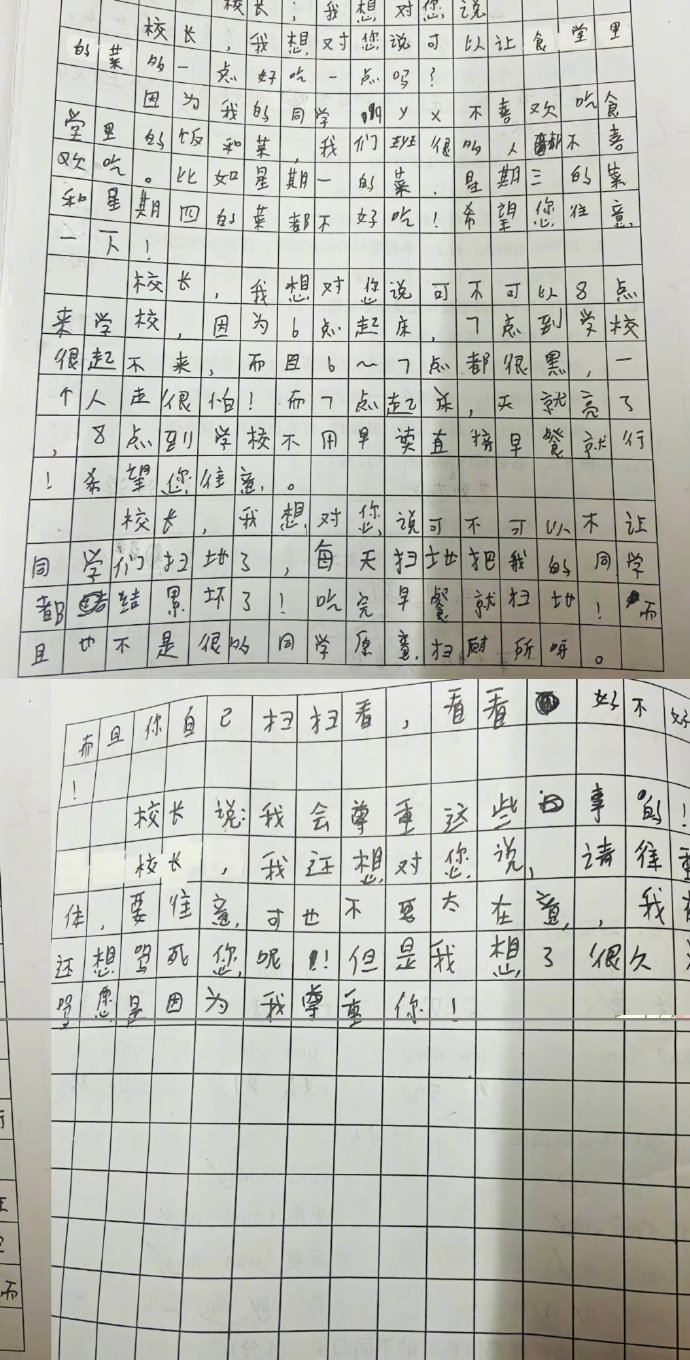 校长，我想对您说
校长，我想对您说可以让食堂里
的菜的一点好吃一点吗？
因为我的同学 yx不喜欢吃食
堂里的饭和菜，我们班很的人都不喜
欢吃。比如星期一的菜、星期三的菜
和星期四的菜都不好吃！希望您住意
一下！
校长，我想对您说可不可以8点
来学校，因为6点起床，7点到学校
很起不来，而且6～7点都很黑，一
个人走很怕！而7点起床，天就亮了
，8点到学校不用早读直接早餐就行
！希望您住意。
校长，我想对您说可不可以不让
同学们扫地了，每天扫地把我的同学
都结累坏了！吃完早餐就扫地！而
且也不是很的同学原意扫厕所呀。
而且你自己扫扫看，看看好不好
！
校长说：我会尊重这些事的！
校长，我还想对您说，请住重
体，要住意，可也不要太在意，我
还想骂死您呢！但是我想了很久
骂您是因为我尊重你！